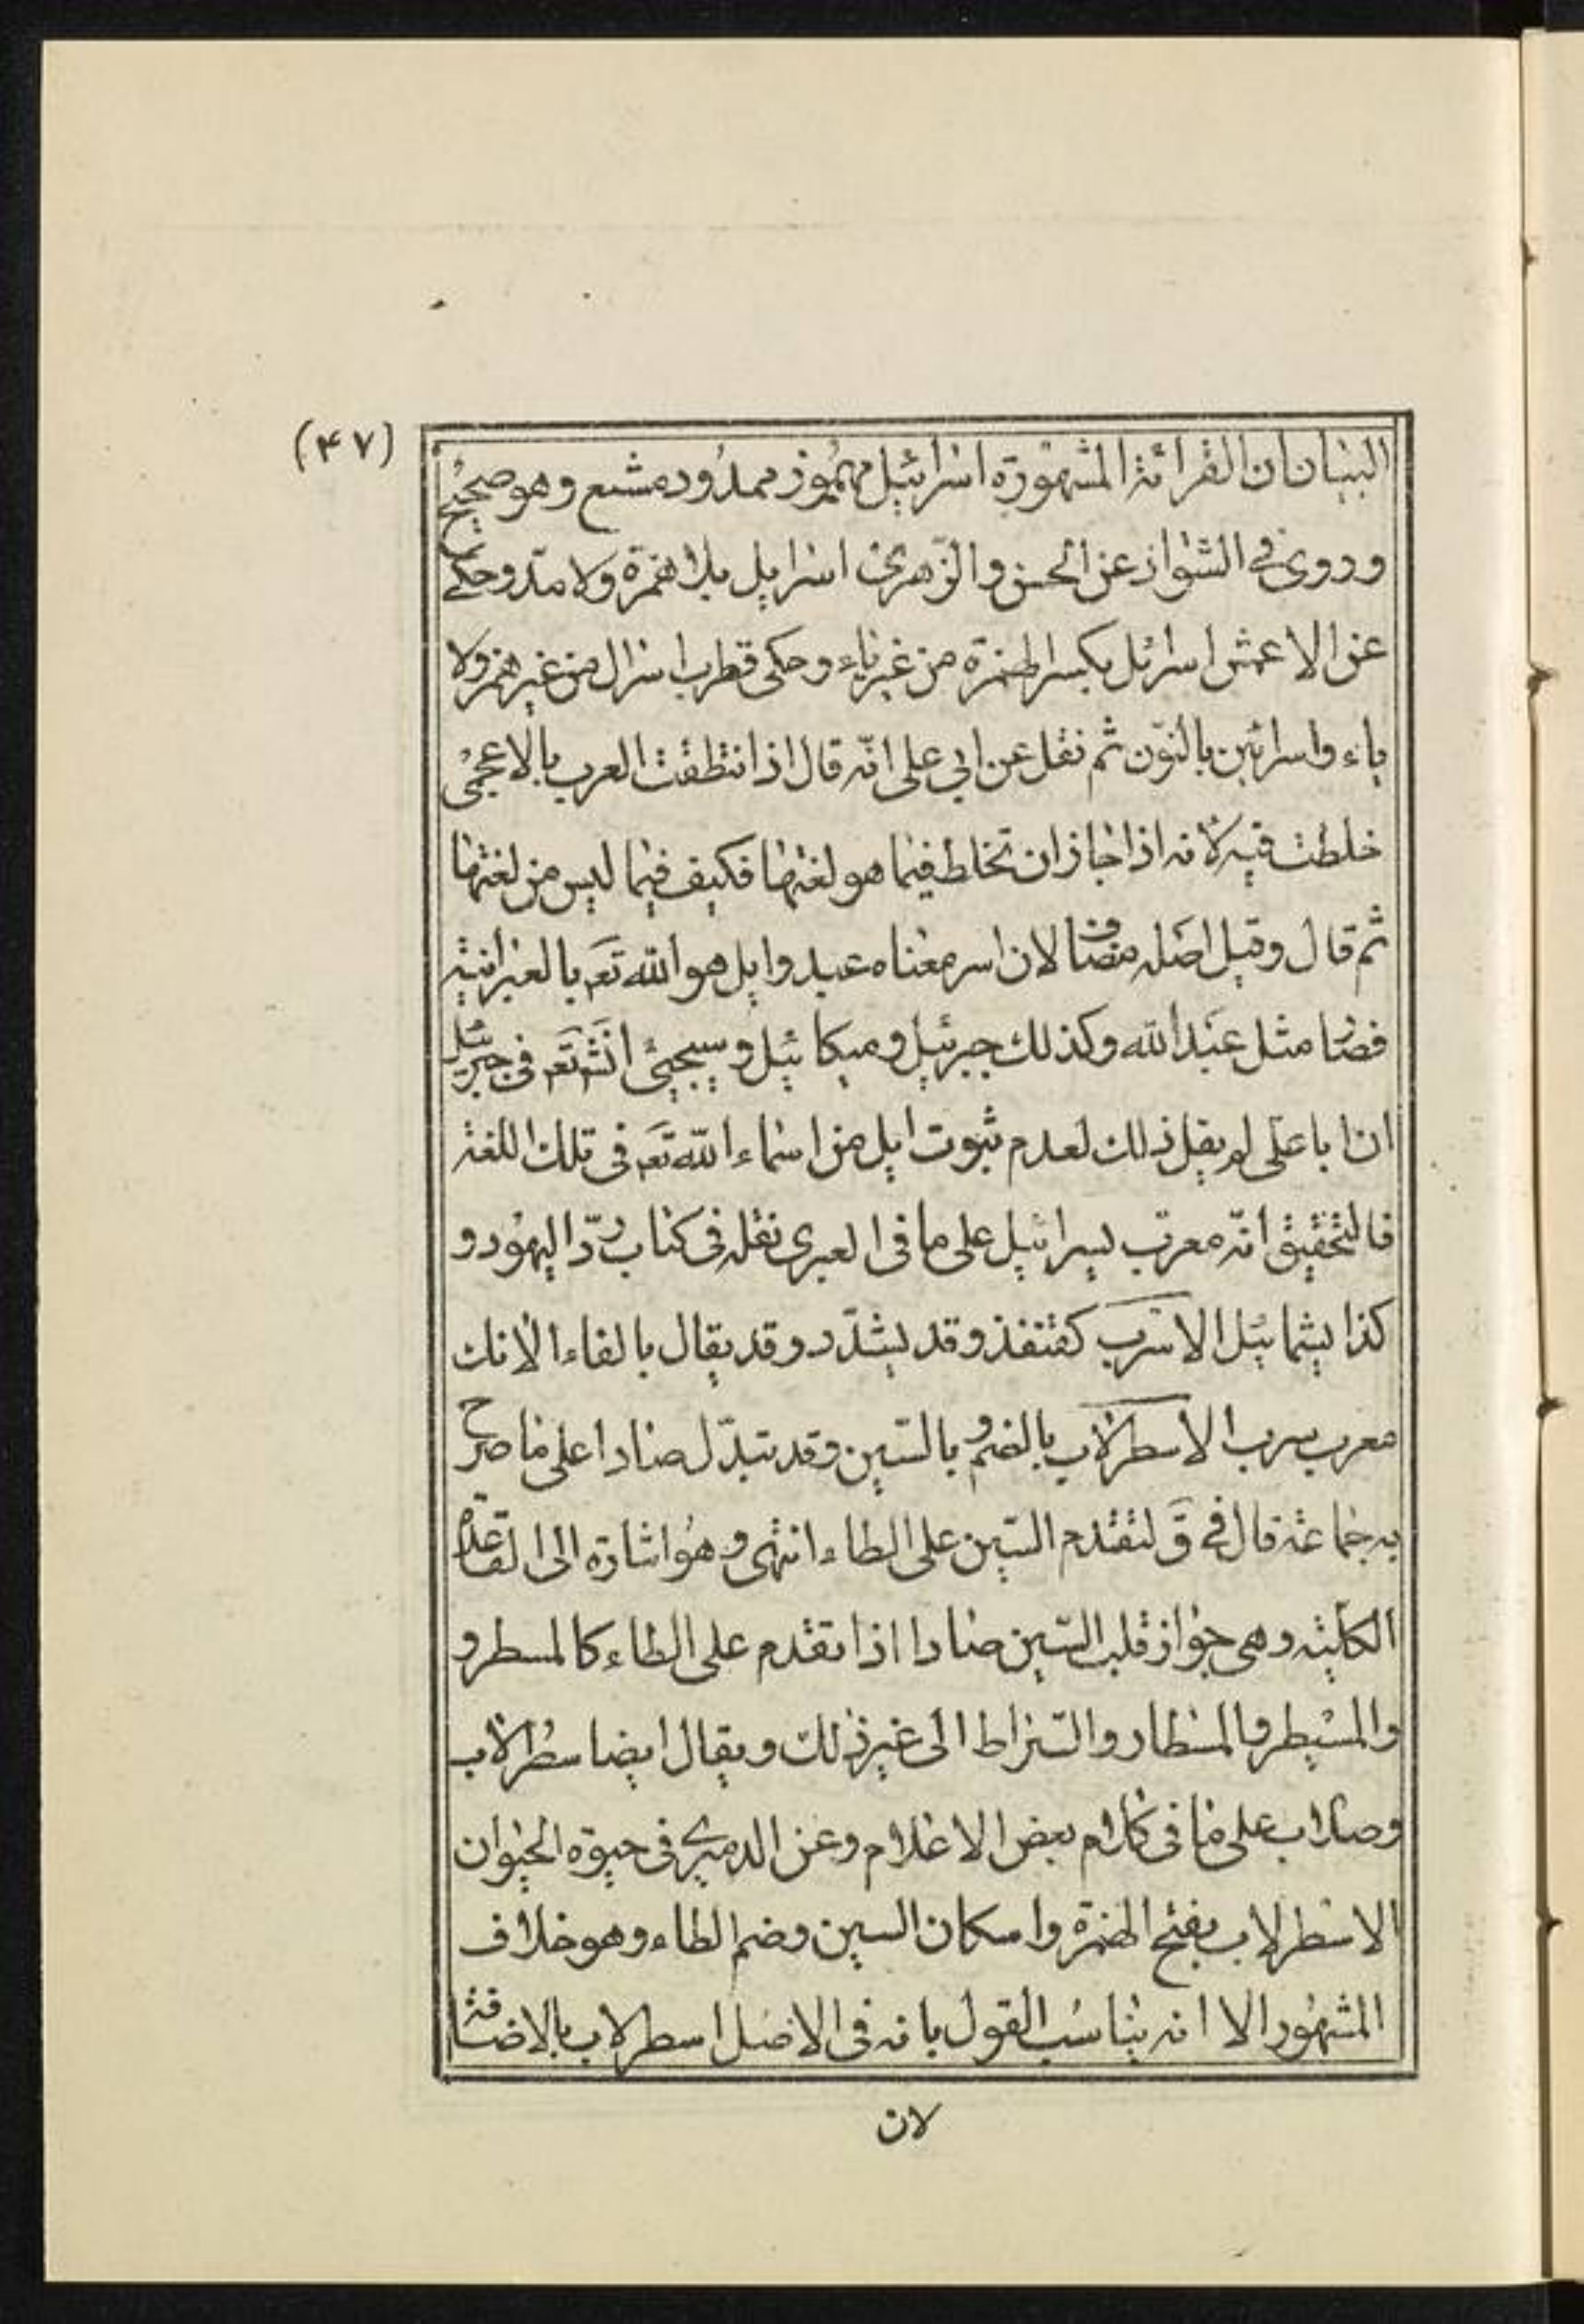 (۴۷)
البیان ان القرائة المشهورة اسرائیل مهموز ممدود مشبع و هو صحیح
و روی فی الشواذ عن الحسن والزهری اسرایل بلا همزة ولا مدّ و حکی
عن الاعمش اسرئل بکسر الهمزة من غیر یاء و حکی قطرب اسرال من غیر همز ولا
یاء و اسرائین بالنون ثم نقل عن ابی علی انّه قال اذا نطقت العرب بالاعجمی
خلطت فیه لانه اذا جاز ان تخلط فیما هو لغتها فکیف فیما لیس من لغتها
ثم قال و قیل اصله مضاف لان اسر معناه عبد و ایل هو الله تعه بالعبرانیة
فصار مثل عبد الله و کذلک جبرئیل و میکائیل و سیجیئ انشه تعه فی جبرئیل
ان ابا علی لم یقل ذلک لعدم ثبوت ایل من اسماء الله تعه فی تلک اللغة
فالتحقیق انّه معرّب یسرائیل علی ما فی العبری نقله فی کتاب ردّ الیهود و
کذا یشمائیل الاسرب کقنفذ و قد یشدّد و قد یقال بالفاء الانک
معرب سرب الاسطرلاب بالضم و بالسّین و قد تبدّل صادا علی ما صرح
به جماعة قال فی ق لتقدم السّین علی الطاء انتهی و هو اشارة الی القاعدة
الکلّیة و هی جواز قلب السّین صادا اذا تقدم علی الطاء کالمسطر و
والمسیطر و المسطار و السّراط الی غیر ذلک و یقال ایضا سطرلاب
و صلاب علی ما فی کلام بعض الاعلام و عن الدمیری فی حیوة الحیوان
الاسطرلاب بفتح الهمزة و اسکان السین و ضم الطاء و هو خلاف
المشهور الا انه یناسب القول بانه فی الاصل اسطرلاب بالاضافة
لان